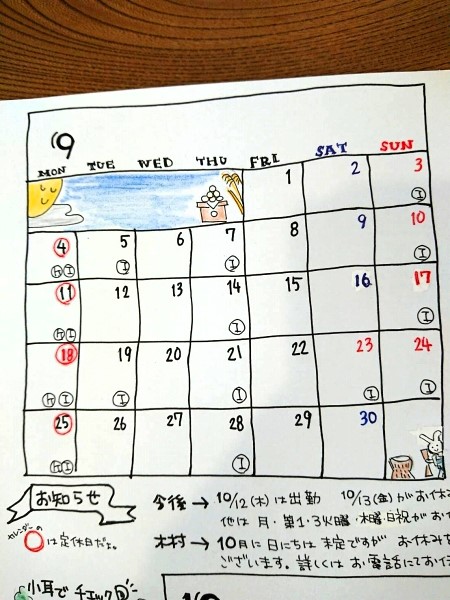 '9
MON TUE WED THU FRI SAT SUN
1 2 3
エ
4 5 6 7 8 9 10
カ エ エ エ エ
11 12 13 14 15 16 17
カ エ エ エ
18 19 20 21 22 23 24
カ エ エ エ エ エ
25 26 27 28 29 30
カ エ エ
お知らせ
カレンダーの
○は定休日だよ。
今後→10/12(木)は出勤 10/13(金)がお休み
他は月・第1・3火曜・木曜・日祝がお
木村→10月に日にちは未定ですが お休み
ございます。詳しくは お電話にてお
小耳でチェック